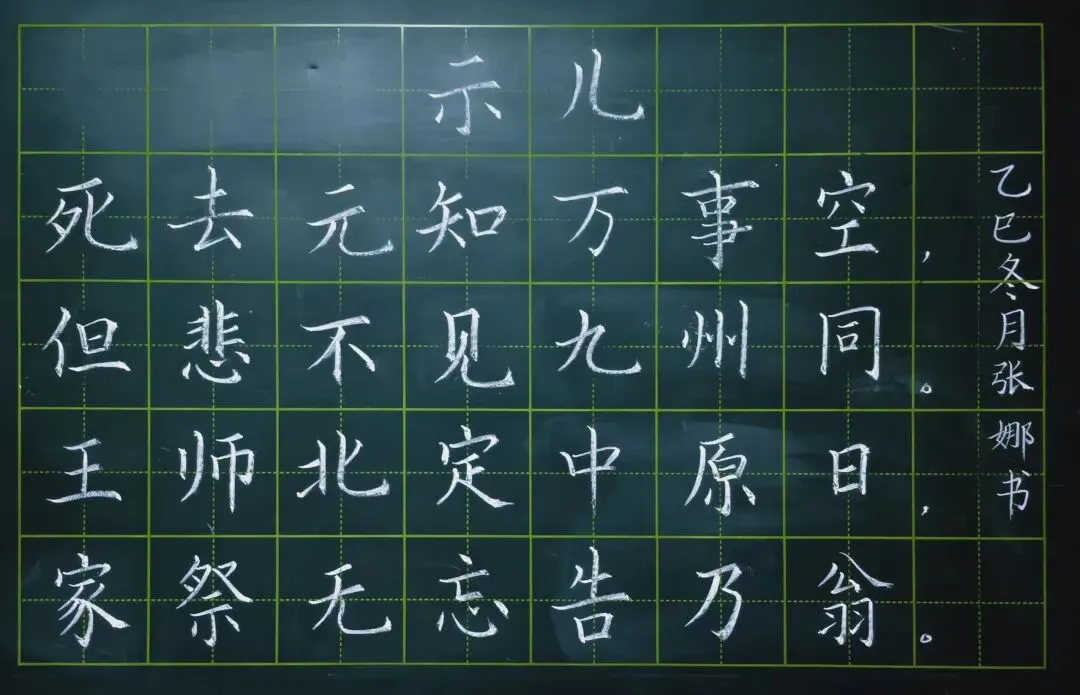 示儿
死去元知万事空，
但悲不见九州同。
王师北定中原日，
家祭无忘告乃翁。
乙巳冬月张娜书